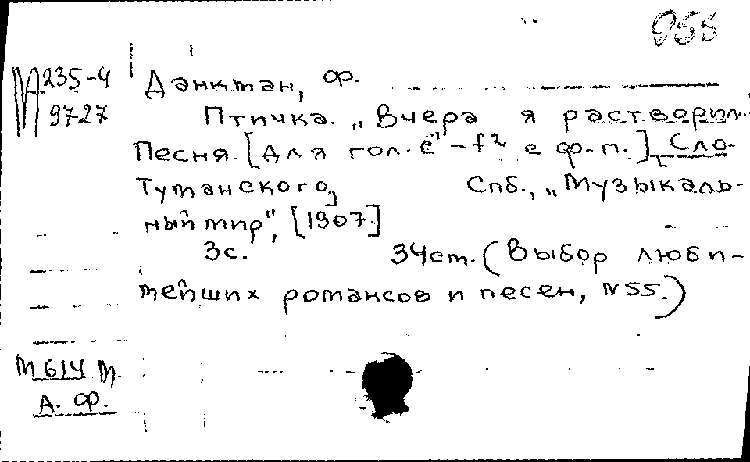 955
М 235-4
9727
Данкман, Ф.
Птичка. „Вчера я растворил."
Песня. [Для гол. e¹-f² с ф.-п.] Сло.
Туманского, Спб., „Музыкаль-
ный мир", [1907.]
3с. 34ст. (Выбор люби-
мейших романсов и песен, N55.)
М 614 М
А. Ф.